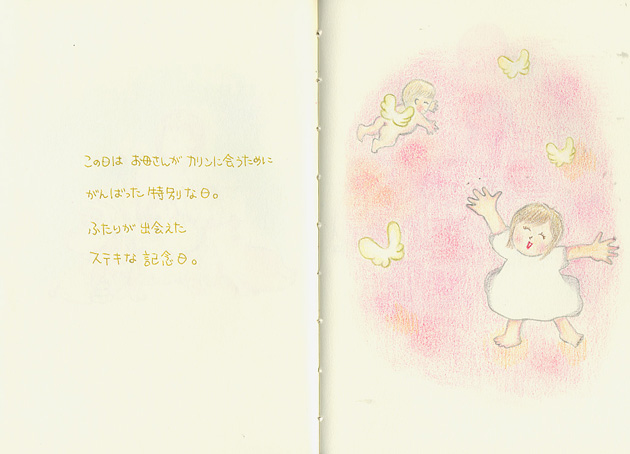 この日は お母さんが カリンに会うために
がんばった 特別な日。
ふたりが 出会えた
ステキな 記念日。